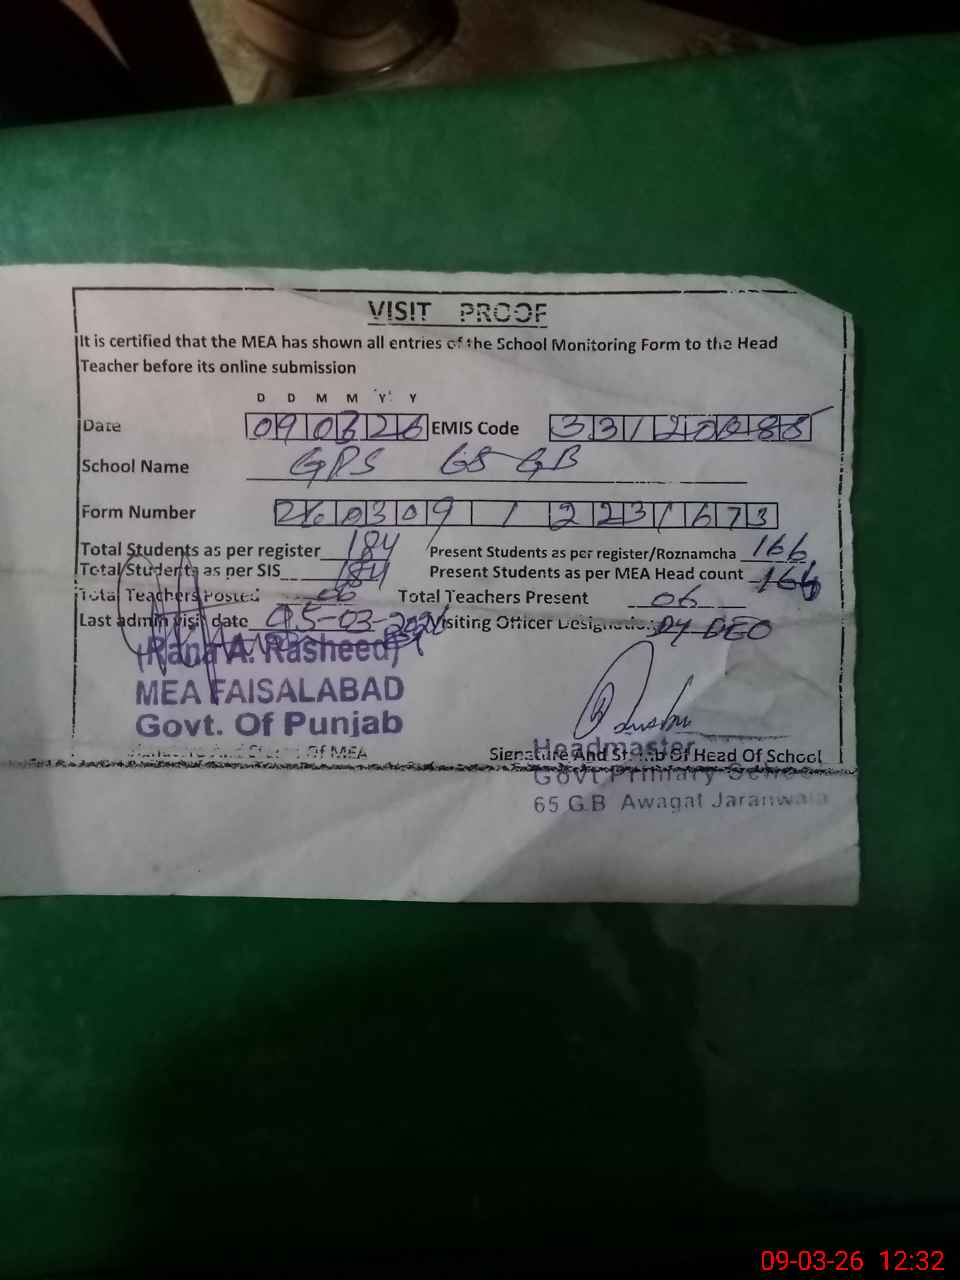 VISIT PROOF
It is certified that the MEA has shown all entries of the School Monitoring Form to the Head
Teacher before its online submission
D D M M Y Y
Date 090326 EMIS Code 33120288
School Name GPS 65 GB
Form Number 260309 1 2231673
Total Students as per register 184 Present Students as per register/Roznamcha 166
Total Students as per SIS 184 Present Students as per MEA Head count 166
Total Teachers Posted 06 Total Teachers Present 06
Last admin visit date 05-03-2026 Visiting Officer Designation DY DEO
(Rana A. Rasheed)
MEA FAISALABAD
Govt. Of Punjab
Of MEA Signature And Stamp Of Head Of School
Headmaster
Govt Primary School
65 G.B Awagat Jaranwala
09-03-26 12:32